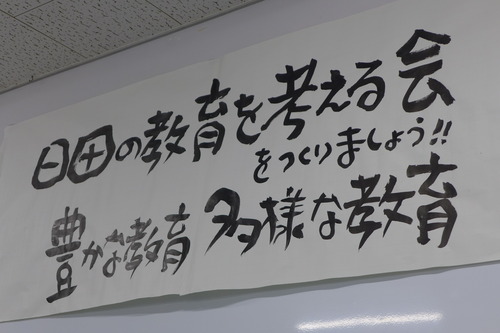 日田の教育を考える会
をつくりましょう!!
豊かな教育 多様な教育